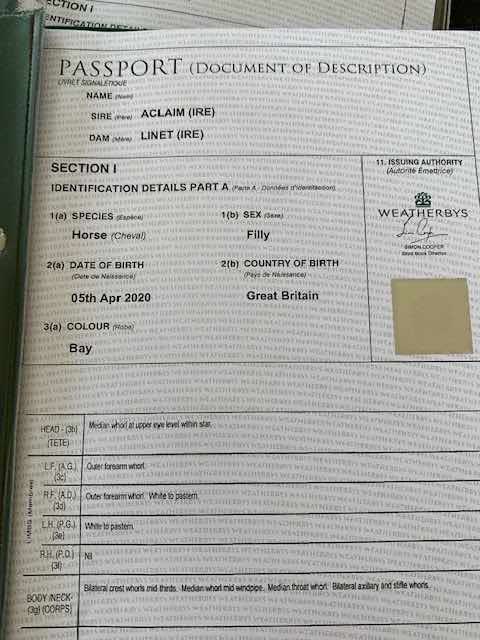 SECTION I
PASSPORT (DOCUMENT OF DESCRIPTION)
LIVRET SIGNALETIQUE
NAME (Nom)
SIRE (Père) ACLAIM (IRE)
DAM (Mère) LINET (IRE)
SECTION I
IDENTIFICATION DETAILS PART A (Partie A - Données d'identification)
1(a) SPECIES (Espèce) 1(b) SEX (Sexe)
Horse (Cheval) Filly
2(a) DATE OF BIRTH 2(b) COUNTRY OF BIRTH
(Date de Naissance) (Pays de Naissance)
05th Apr 2020 Great Britain
3(a) COLOUR (Robe)
Bay
11. ISSUING AUTHORITY
(Autorité Émettrice)
WEATHERBYS
SIMON COOPER
Stud Book Director
HEAD - (3b) Median whorl at upper eye level within star.
(TETE)
LIMBS (Membres)
L.F. (A.G.) Outer forearm whorl.
(3c)
R.F. (A.D.) Outer forearm whorl. White to pastern.
(3d)
L.H. (P.G.) White to pastern.
(3e)
R.H. (P.D.) Nil
(3f)
BODY /NECK- Bilateral crest whorls mid-thirds. Median whorl mid windpipe. Median throat whorl. Bilateral axillary and stifle whorls.
(3g) (CORPS)